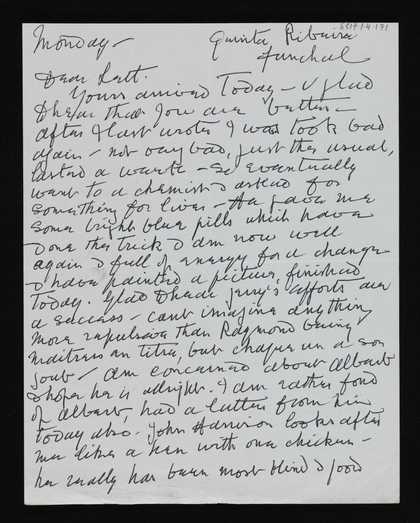 8419/1/4/171
Monday - Quinta Ribeira
Funchal
Dear Lett.
Yours arrived Today - V glad
to hear that you are better -
after I last wrote I was took bad
again - not very bad, just the usual,
lasted a week - so eventually
went to a chemist & asked for
something for liver - He gave me
some bright blue pills which have
done the trick & am now well
again & full of energy for a change
& have painted a picture, finished
today. Glad to hear Jerry's efforts are
a success - cant imagine anything
more repulsive than Raymond being
maitress en titre, but chaque un a son
gout - Am concerned about Albert
& hope he is allright. I am rather fond
of Albert, had a letter from him
today also. John Harrison looks after
me like a hen with one chicken -
he really has been most kind & good